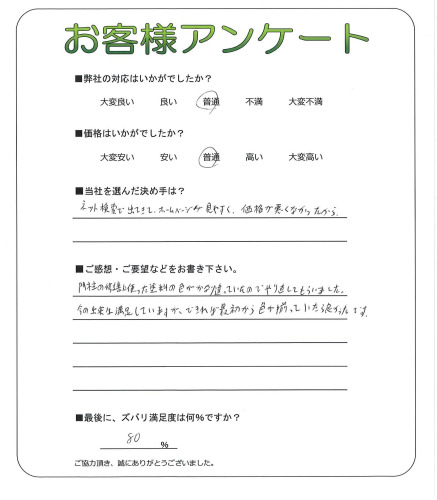 お客様アンケート
■弊社の対応はいかがでしたか？
大変良い 良い 普通 不満 大変不満
■価格はいかがでしたか？
大変安い 安い 普通 高い 大変高い
■当社を選んだ決め手は？
ネット検索で出てきて、ホームページが見やすく、価格が悪くなかったから
■ご感想・ご要望などをお書き下さい。
使った塗料の色がかなり違っていたのでやり直してもらいました。
今の出来は満足していますが、できれば最初から色が揃っていたら良かったです。
■最後に、ズバリ満足度は何%ですか？
80 %
ご協力頂き、誠にありがとうございました。